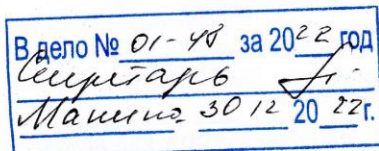 В дело № 01-48 за 2022 год
Секретарь
Манина 30 12 2022 г.